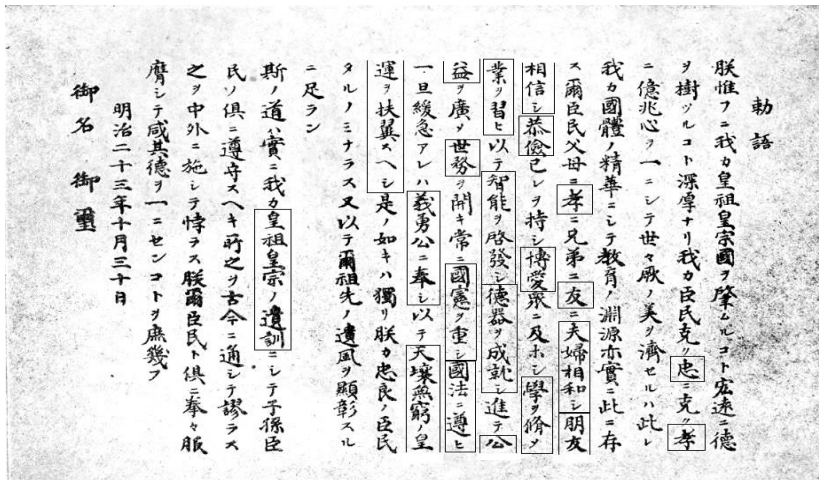 勅語
朕惟フニ我カ皇祖皇宗國ヲ肇ムルコト宏遠ニ德
ヲ樹ツルコト深厚ナリ我カ臣民克ク忠ニ克ク孝
ニ億兆心ヲ一ニシテ世々厥ノ美ヲ濟セルハ此レ
我カ國體ノ精華ニシテ教育ノ淵源亦實ニ此ニ存
ス爾臣民父母ニ孝ニ兄弟ニ友ニ夫婦相和シ朋友
相信シ恭儉己レヲ持シ博愛衆ニ及ホシ學ヲ修メ
業ヲ習ヒ以テ智能ヲ啓發シ德器ヲ成就シ進テ公
益ヲ廣メ世務ヲ開キ常ニ國憲ヲ重シ國法ニ遵ヒ
一旦緩急アレハ義勇公ニ奉シ以テ天壤無窮ノ皇
運ヲ扶翼スヘシ是ノ如キハ獨リ朕カ忠良ノ臣民
タルノミナラス又以テ爾祖先ノ遺風ヲ顯彰スル
ニ足ラン
斯ノ道ハ實ニ我カ皇祖皇宗ノ遺訓ニシテ子孫臣
民ノ俱ニ遵守スヘキ所之ヲ古今ニ通シテ謬ラス
之ヲ中外ニ施シテ悖ラス朕爾臣民ト俱ニ拳々服
膺シテ咸其德ヲ一ニセンコトヲ庶幾フ
明治二十三年十月三十日
御名 御璽